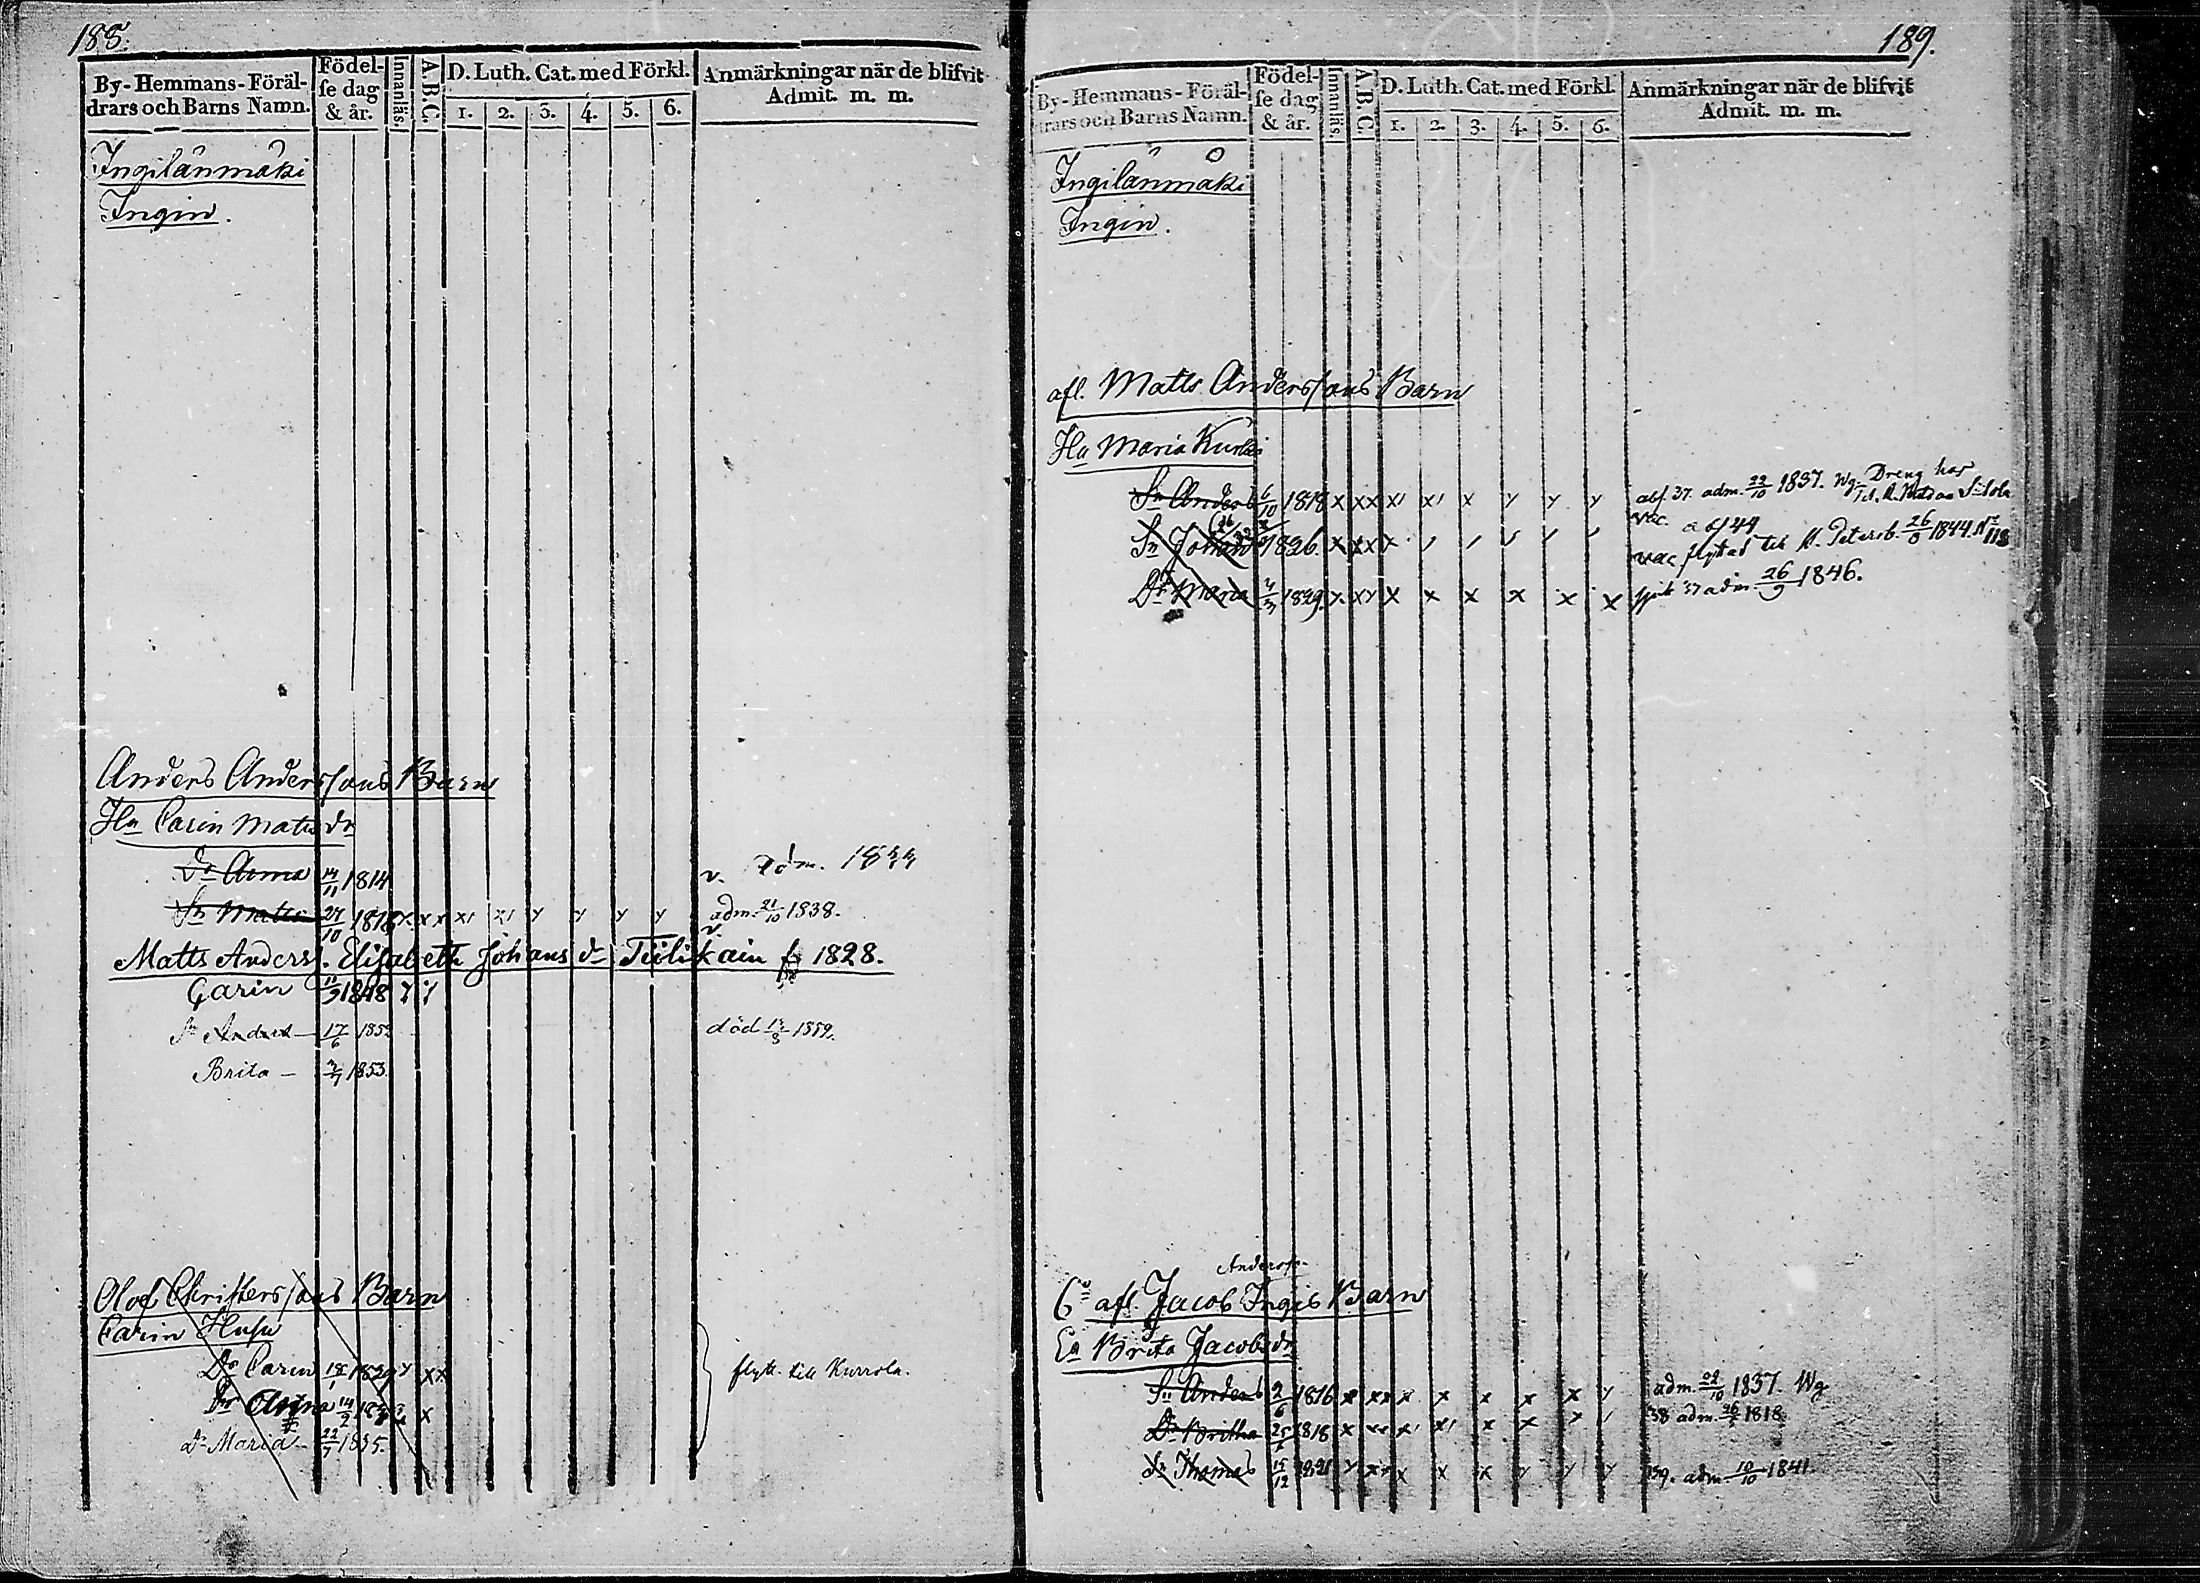 188.
By-Hemmans-Föräl-
drars och Barns Namn.
Födel-
se dag
& år.
Innanläs.
A.B.C.
D. Luth. Cat. med Förkl.
1. 2. 3. 4. 5. 6.
Anmärkningar när de blifvit
Admit. m. m.
Ingilänmäki
Ingin.
Anders Anderssons Barn
Hu Carin Matsdr
Dr Anna 14/11 1814 v. adm. 1833
Sn Matts 24/10 1818 x. x x x1 x1 y y y y adm. 21/10 1838.
v.
Matts Anderss. Elisabeth Johansdr Tiilikain f. 1828.
Carin 11/3 1848
Sn Anders 17/6 1852 död 1859.
Brita 1853
Olof Christerssons Barn
Carin Husu
Dr Carin 18/1 x x
Dr Anna 14/2 x
Dr Maria 22/7 1835.
flytt. till Kurrola.
189.
By-Hemmans-Föräl-
drars och Barns Namn.
Födel-
se dag
& år.
Innanläs.
A.B.C.
D. Luth. Cat. med Förkl.
1. 2. 3. 4. 5. 6.
Anmärkningar när de blifvit
Admit. m. m.
Ingilänmäki
Ingin.
afl. Matts Anderssons Barn
Hu Maria Kurki
Sn Anders 6/10 1818 x xx x1 x1 x y y y 37. adm. 22/10 1837. Wg. Dreng hos
vac. af 44
Sn Johan 1826. x xx x vac flyttat till St. Petersb. 26/8 1844. No 118
Dr Maria 4/3 1829. x. xy x x x x x x 57 adm. 26/9 1846.
Anderss.
6 afl. Jacob Ingis Barn
Ea Brita Jacobsdr
Sn Anders 2/6 1816 x xx x x x x x y adm. 22/10 1837. Wg
Dr Britha 25/1 1818 x 38 adm. 26/5 1818
Sn Thomas 15/12 39. adm. 10/10 1841.